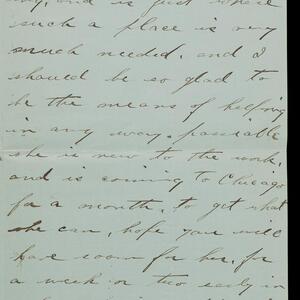 and is just where
such a place is very
much needed. and I
should be so glad to
be the means of helping
in any way. possiable
she is new to the work.
and is coming to Chicago
for a month, to get what
she can, hope you will
have room for her, for
a week or two early in